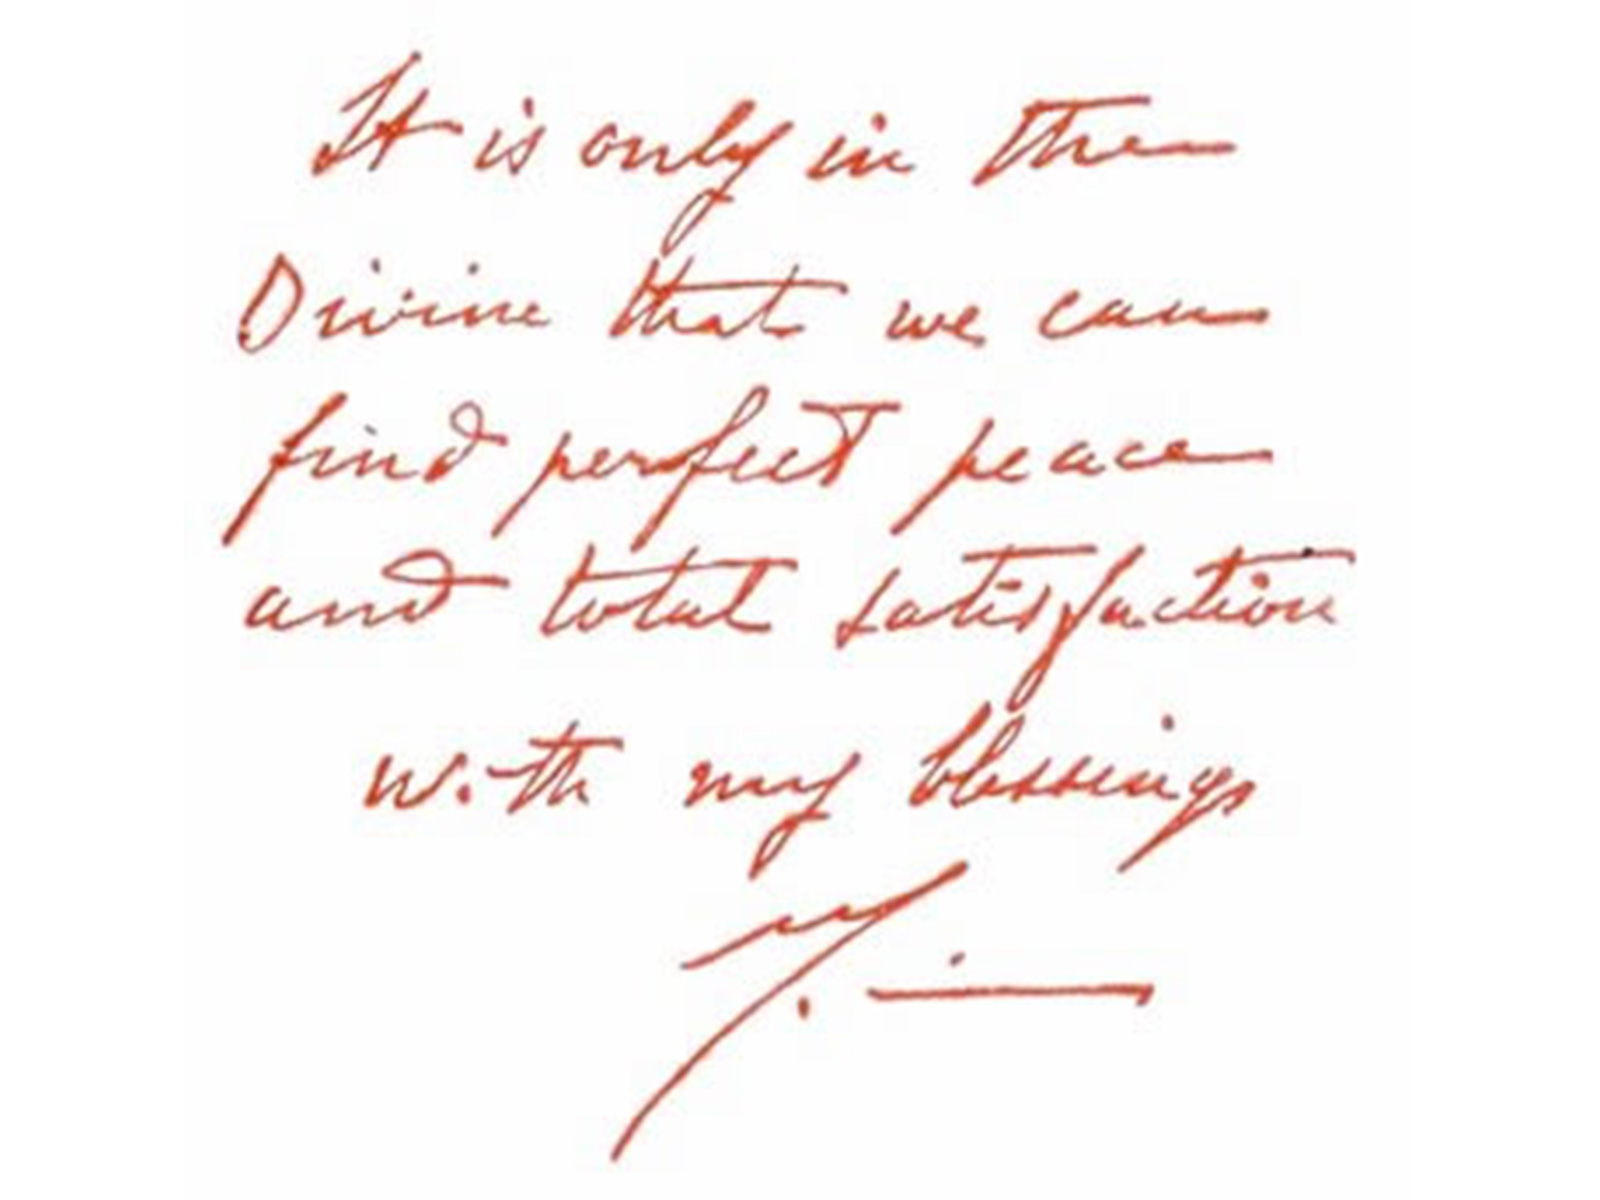 It is only in the
Divine that we can
find perfect peace
and total satisfaction
with my blessings